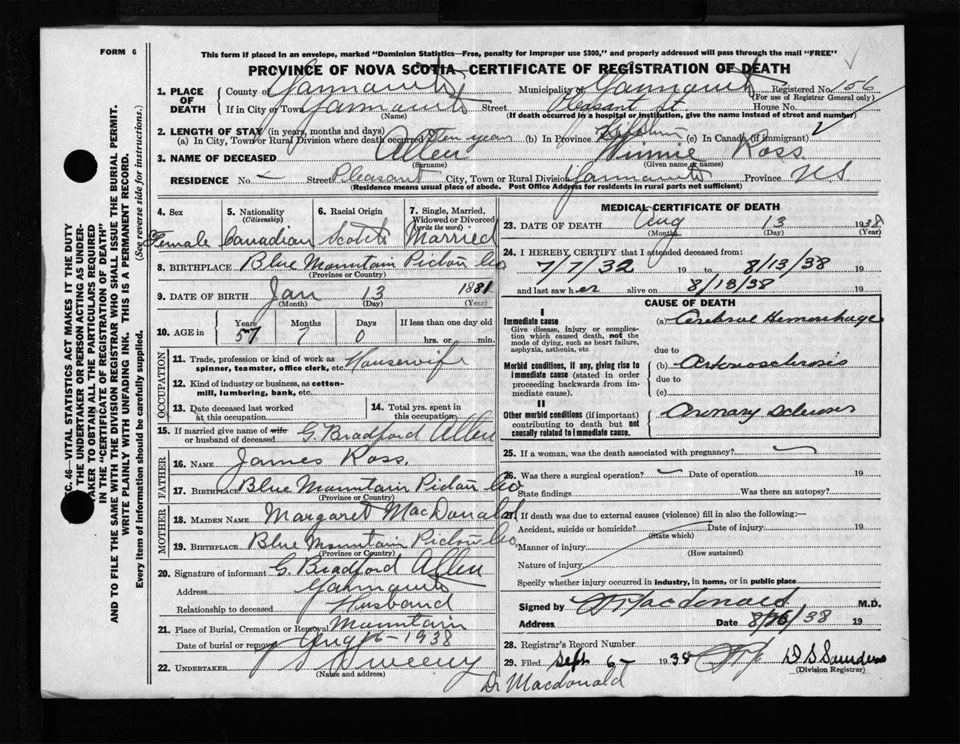 FORM 6
This form if placed in an envelope, marked "Dominion Statistics—Free, penalty for improper use $300," and properly addressed will pass through the mail "FREE"
PROVINCE OF NOVA SCOTIA—CERTIFICATE OF REGISTRATION OF DEATH
1. PLACE OF DEATH
County of Yarmouth Municipality of Yarmouth Registered No. 156
(For use of Registrar General only)
If in City or Town Yarmouth Street Pleasant St House No.
(Name) (If death occurred in a hospital or institution, give the name instead of street and number)
2. LENGTH OF STAY (in years, months and days)
(a) In City, Town or Rural Division where death occurred Ten years (b) In Province (c) In Canada (if immigrant)
3. NAME OF DECEASED Allen Winnie Ross
(Surname) (Given name or names)
RESIDENCE No. – Street Pleasant City, Town or Rural Division Yarmouth Province NS
(Residence means usual place of abode. Post Office Address for residents in rural parts not sufficient)
4. Sex Female
5. Nationality (Citizenship) Canadian
6. Racial Origin Scotch
7. Single, Married, Widowed or Divorced (write the word) Married
8. BIRTHPLACE Blue Mountain Pictou Co
(Province or Country)
9. DATE OF BIRTH Jan 13 1881
(Month) (Day) (Year)
10. AGE in Years 57 Months 7 Days 0 If less than one day old hrs. or min.
OCCUPATION
11. Trade, profession or kind of work as spinner, teamster, office clerk, etc. Housewife
12. Kind of industry or business, as cotton-mill, lumbering, bank, etc.
13. Date deceased last worked at this occupation
14. Total yrs. spent in this occupation
15. If married give name of wife or husband of deceased G. Bradford Allen
FATHER
16. NAME James Ross.
17. BIRTHPLACE Blue Mountain Pictou Co
(Province or Country)
MOTHER
18. MAIDEN NAME Margaret MacDonald
19. BIRTHPLACE Blue Mountain Pictou Co
(Province or Country)
20. Signature of informant G. Bradford Allen
Address Yarmouth
Relationship to deceased Husband
21. Place of Burial, Cremation or Removal Mountain
Date of burial or removal Aug 16 - 1938
22. UNDERTAKER Sweeny
(Name and address)
MEDICAL CERTIFICATE OF DEATH
23. DATE OF DEATH Aug 13 1938
(Month) (Day) (Year)
24. I HEREBY CERTIFY that I attended deceased from:
7 7 32 19 to 8/13/38 19
and last saw her alive on 8/13/38 19
CAUSE OF DEATH
I
Immediate cause
Give disease, injury or complication which caused death, not the mode of dying, such as heart failure, asphyxia, asthenia, etc.
(a) Cerebral Hemorrhage
due to
Morbid conditions, if any, giving rise to immediate cause (stated in order proceeding backwards from immediate cause).
(b)
due to
(c)
II
Other morbid conditions (if important) contributing to death but not causally related to immediate cause.
25. If a woman, was the death associated with pregnancy?
26. Was there a surgical operation? Date of operation 19
State findings Was there an autopsy?
27. If death was due to external causes (violence) fill in also the following:—
Accident, suicide or homicide? Date of injury 19
(State which)
Manner of injury
(How sustained)
Nature of injury
Specify whether injury occurred in industry, in home, or in public place
Signed by Macdonald M.D.
Address Date 8/16/38 19
28. Registrar's Record Number
29. Filed Sept 6- 1938 D. S. Saunders
(Division Registrar)
Dr Macdonald
SEC. 46—VITAL STATISTICS ACT MAKES IT THE DUTY
OF THE UNDERTAKER OR PERSON ACTING AS UNDER-
TAKER TO OBTAIN ALL THE PARTICULARS REQUIRED
IN THE "CERTIFICATE OF REGISTRATION OF DEATH"
AND TO FILE THE SAME WITH THE DIVISION REGISTRAR WHO SHALL ISSUE THE BURIAL PERMIT.
WRITE PLAINLY WITH UNFADING INK. THIS IS A PERMANENT RECORD.
Every item of information should be carefully supplied. (See reverse side for instructions.)